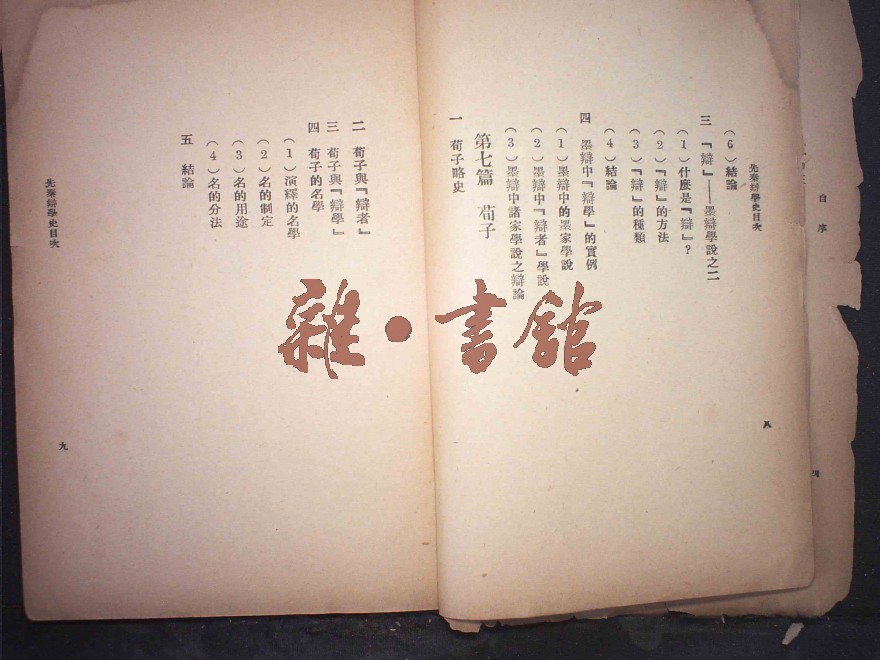 自序
四
先秦辯學史目次
（6）結論
三　『辯』——墨辯學說之二
（1）什麼是『辯』？
（2）『辯』的方法
（3）『辯』的種類
（4）結論
四　墨辯中『辯學』的實例
（1）墨辯中的墨家學說
（2）墨辯中『辯者』學說
（3）墨辯中諸家學說之辯論
第七篇　荀子
一　荀子略史
八
二　荀子與『辯者』
三　荀子與『辯學』
四　荀子的名學
（1）演繹的名學
（2）名的制定
（3）名的用途
（4）名的分法
五　結論
先秦辯學史目次
九
雜・書館